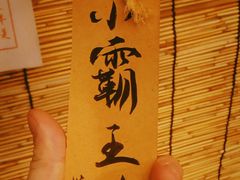 小霸王